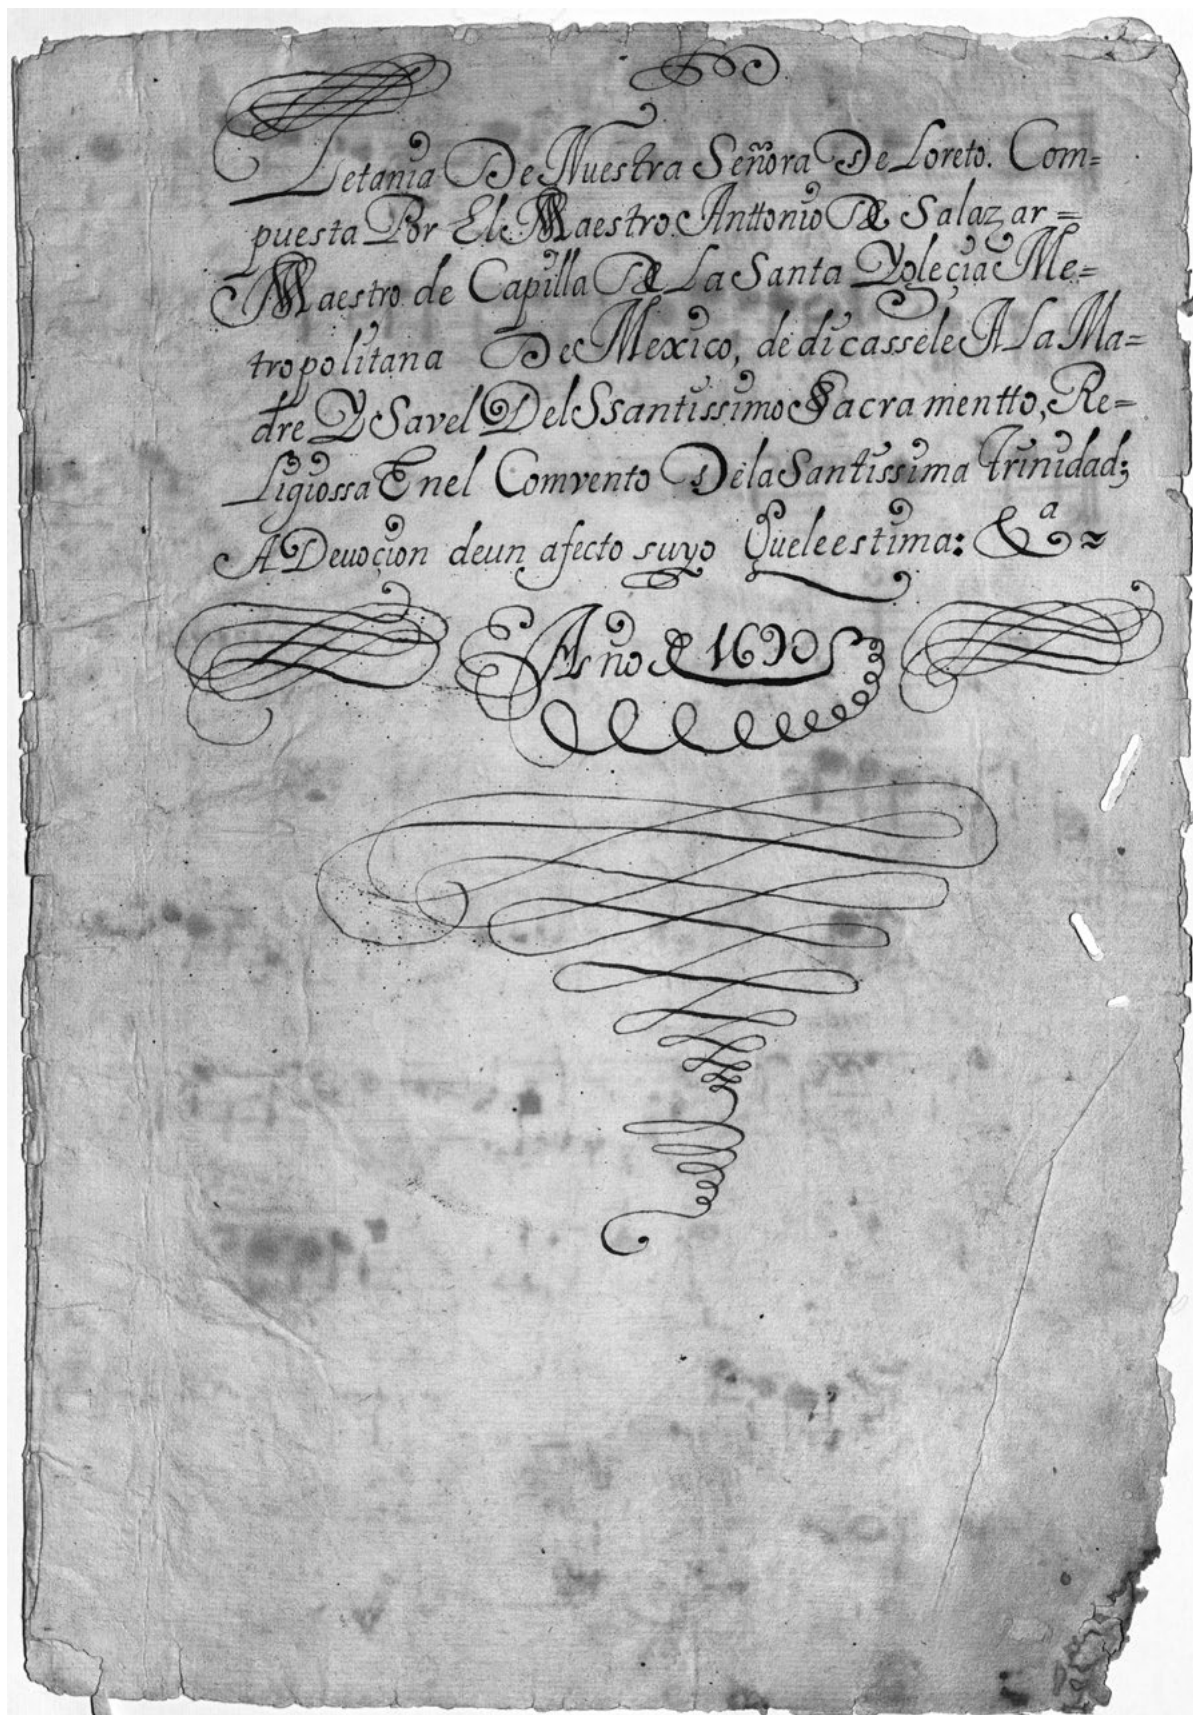 Letania De Nuestra Señora De Loreto. Com=
puesta Por El Maestro Anttonio De Salazar=
Maestro de Capilla De La Santa Yglecia Me=
tropolitana De Mexico, dedicassele A La Ma=
dre YSavel Del Ssantissimo Sacramentto, Re=
Ligiossa Enel Comvento Dela Santissima trinidad;
A Devoçion deun afecto suyo Queleestima: &a
Año de 1690